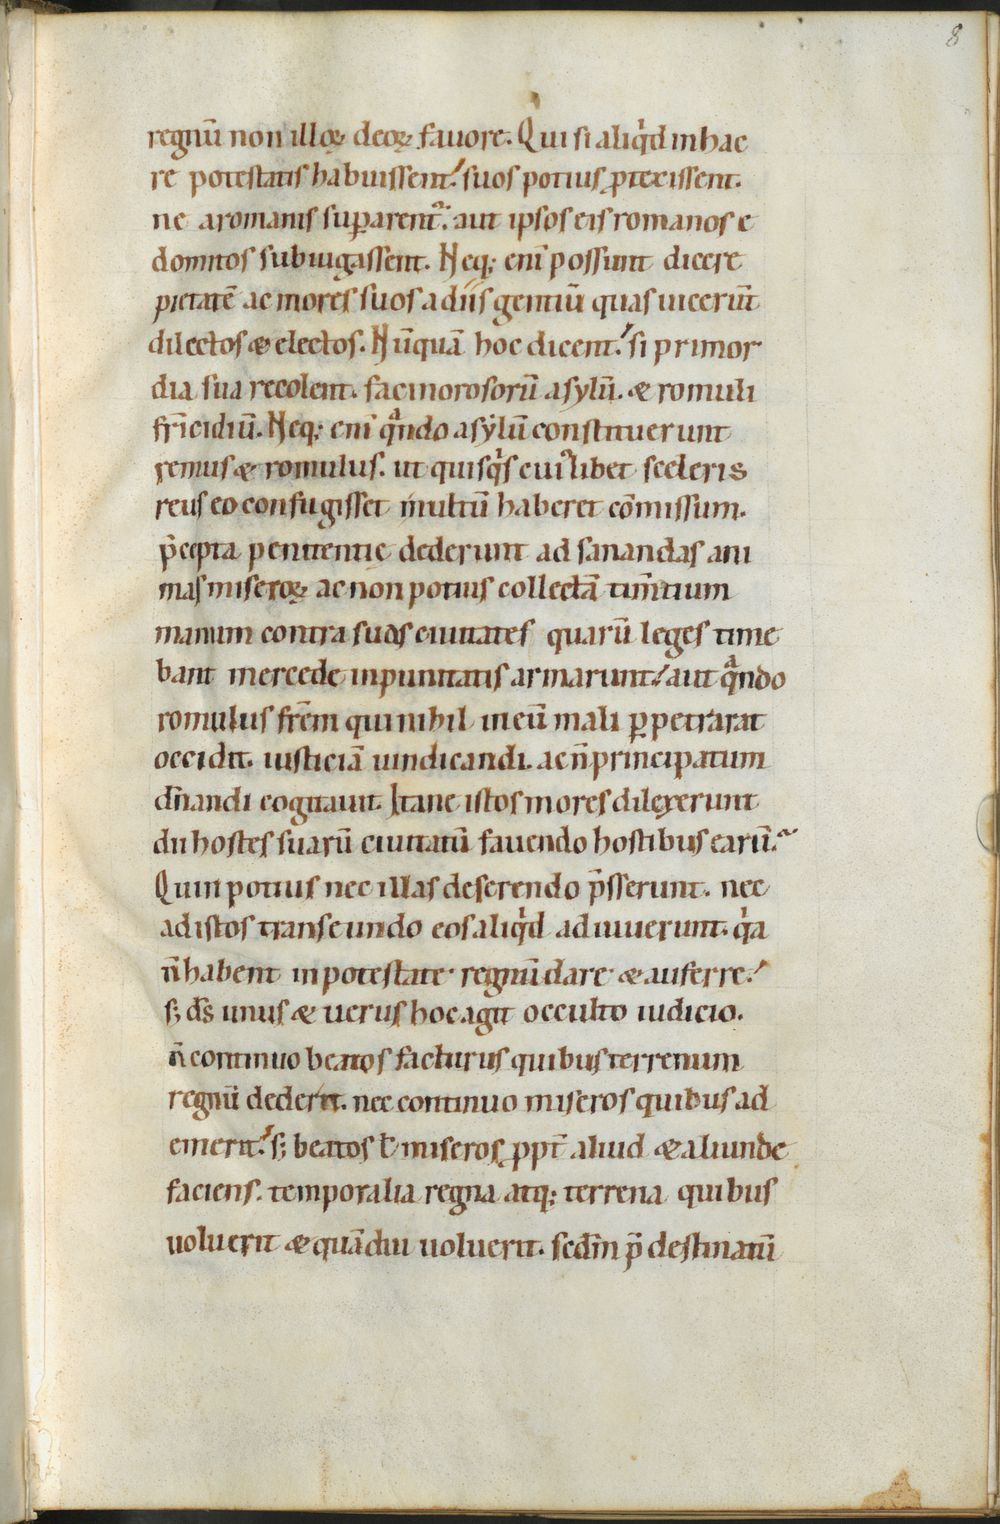 8
regnũ non illoꝝ deoꝝ fauore. Qui si aliqͥd in hac
re potestatis habuissent! suos potius ꝓtexissent.
ne a romanis suꝑarentᷣ. aut ipsos eis romanos e
domitos subiugassent. Neq; eni᷃ possunt dicere
pietatē ac mores suos a diis gentiũ quas uicerũt
dilectos & electos. Nũquā hoc dicent! si primor
dia sua recolent. facinorosorũ asylũ. & romuli
fr̃icidiũ. Neq; enĩ qᷓndo asylũ constituerunt
remus & romulus. ut quisqͥs cui᷒libet sceleris
reus eo confugisset inultũ haberet cōmissum.
p̄cepta penitentie dederunt ad sanandas ani
mas miseroꝝ ac non potius collectā tim̃tium
manum contra suas ciuitates quarũ leges time
bant mercede inpunitatis armarunt! aut qᷓndo
romulus fr̃em qui nihil in eũ mali ꝑpetrarat
occidit. iusticiā uindicandi. ac ñ principatum
dñandi cogitauit. Itane istos mores dilexerunt
dii hostes suarũ ciuitatũ fauendo hostibus earũ.~
Quin potius nec illas deserendo p̄sserunt. nec
ad istos transeundo eos aliqͥd adiuuerunt. qͥa
ñ habent in potestate regnũ dare & auferre!
s; dš unus & uerus hoc agit occulto iudicio.
ñ continuo beatos facturus quibus terrenum
regnũ dederit. nec continuo miseros quibus ad
emerit! s; beatos ł miseros ꝓpt̃ aliud & aliunde
faciens. temporalia regna atq; terrena quibus
uoluerit & quādiu uoluerit. sedm̃ p̄destinatũ